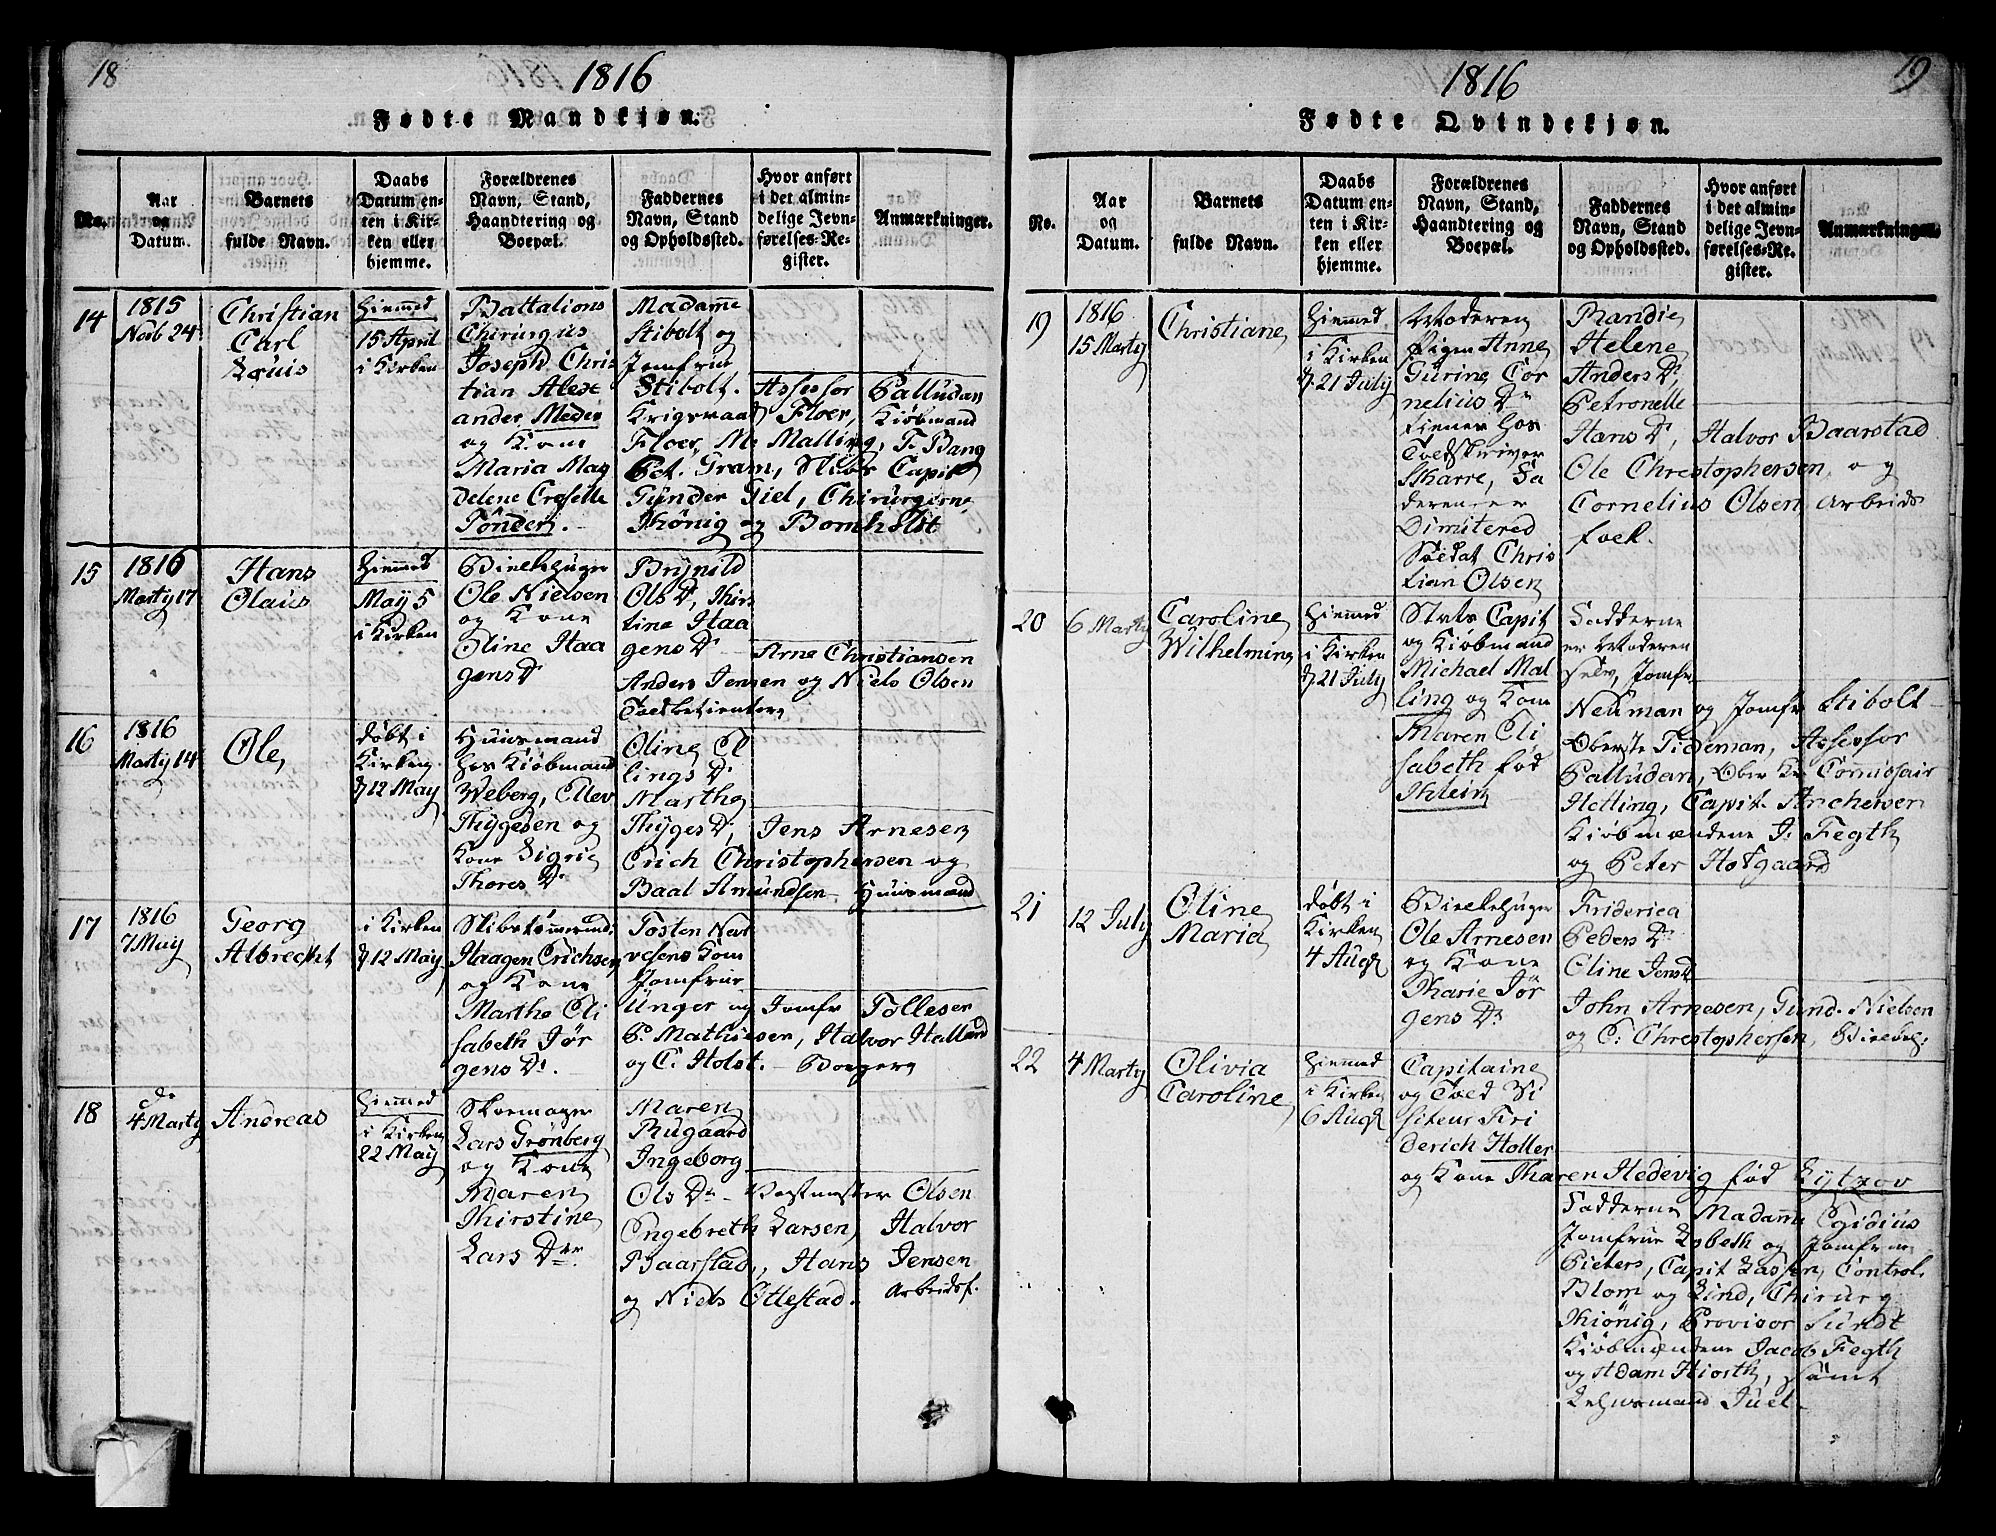 18
1816
Fødte Mandkjøn.
No.
Aar
og
Datum.
Barnets
fulde Navn.
Daabs
Datum en-
ten i Kir-
ken eller
hjemme.
Forældrenes
Navn, Stand,
Haandtering og
Boepæl.
Faddernes
Navn, Stand
og Opholdssted.
Hvor anført
i det almin-
delige Jevn-
førelses-Re-
gister.
Anmærkninger.
14
1815
Novb 24
Christian
Carl
Louis
Hiemmed
15 April
i Kirken
Battalions
Chirurgus
Joseph Chris
tian Alex
ander Meden
og Kone
Maria Mag
delene Croselle
Tønder.
Madame
Stibolt og
Jomfrue
Stibolt. Assessor Palludan
Krigsraad Floer, Kiøbmand
Floer, M. Malling, T. Bang
Pet. Gram, Skibs Capit
Gunder Giel, Chirurgerne,
Kønig og Bomholdt
15
1816
Marty 17
Hans
Olaus
Hiemmed
May 5
i Kirken
Ole Nielsen
og Kone
Eline Haa
gens Dr
Brynild
Ols Dr, Kirs
tine Haa
gens Dr Arne Christiansen
Anders Jensen og Niels Olsen
Toldbetientere
16
1816
Marty 14
Ole
døbt i
Kirken
d. 12 May
Huusmand
hos Kiøbmand
Weberg, Ellev
Thygesen og
Kone Sigrie
Thores Dr
Oline El
lings Dr
Marthe
Thyges Dr, Jens Arnesen
Erich Christophersen og
Baal Amundsen Huusmænd
17
1816
7 May
Georg
Albrecht
i Kirken
d. 12 May
Skibstømmermd.
Haagen Erichsen
og Kone
Marthe Eli
sabeth Jør
gens Dr.
Tosten
Jomfrue
Unger og Jomfr Tollesen
P. Mathiesen, Halvor Halland
og C. Holst. Borgere
18
do
4 Marty
Andreas
Hiemmed
i Kirken
22 May
Skoemager
Lars Grønberg
og Kone
Maren
Kirstine
Lars Dr
Maren
Rugaard
Ingeborg
Ols Dr Olsen
Engebreth Larsen, Halvor
Baarstad, Hans Jensen
og Niels Ottestad. Arbeidsf.
19
1816
Fødte Qvindekjøn.
No.
Aar
og
Datum.
Barnets
fulde Navn.
Daabs
Datum en-
ten i Kir-
ken eller
hjemme.
Forældrenes
Navn, Stand,
Haandtering og
Boepæl.
Faddernes
Navn, Stand
og Opholdssted.
Hvor anført
i det almin-
delige Jevn-
førelses-Re-
gister.
Anmærkninger.
19
1816
15 Marty
Christiane
Hiemmed
i Kirken
d. 21 July
Moderen
Pigen Anne
Gurine Cor
nelius Dr
tiener hos
Toldskriver
Skarre, Fa
deren er
Dimitered
Soldat Chris
tian Olsen
Randie
Helene
Anders Dr,
Petronelle
Hans Dr, Halvor Baarstad
Ole Chrestophersen og
Cornelius Olsen Arbeids
folk.
20
6 Marty
Caroline
Wilhelmine
Hiemmed
i Kirken
d. 21 July
Skibs Capit
og Kiøbmand
Michael Mal
ling og Kone
Maren Eli
sabeth fød
Klein
Fadderne
er Moderen
selv, Jomfr
Neuman og Jomfr Stibolt
Oberste Tideman, Assessor
Palludan, Ober Kr Comissair
Hetting, Capit Anchersen
Kiøbmændene J. Fegth
og Peter Hofgaard
21
12 July
Oline
Maria
døbt i
Kirken
4 Augt
Ole Arnesen
og Kone
Marie Jør
gens Dr
Friderica
Peders Dr
Eline Jens Dr
John Arnesen, Gund. Nielsen
og C. Chrestophersen,
22
4 Marty
Olivia
Caroline
Hiemmed
i Kirken
6 Augt
Capitaine
og Told Vi
siteur Fri
derich Holler
og Kone Maren Hedevig fød Lytzov
Fadderne Madame Egidius
Jomfrue Lisbeth og Jomfrue
Pieters, Capit Lassen, Control.
Blom og Lind, Chirurg
Kiønig, Provisor Sundt
Kiøbmændene Jacob Fegth
og Adam Hiorth, samt
Juel.